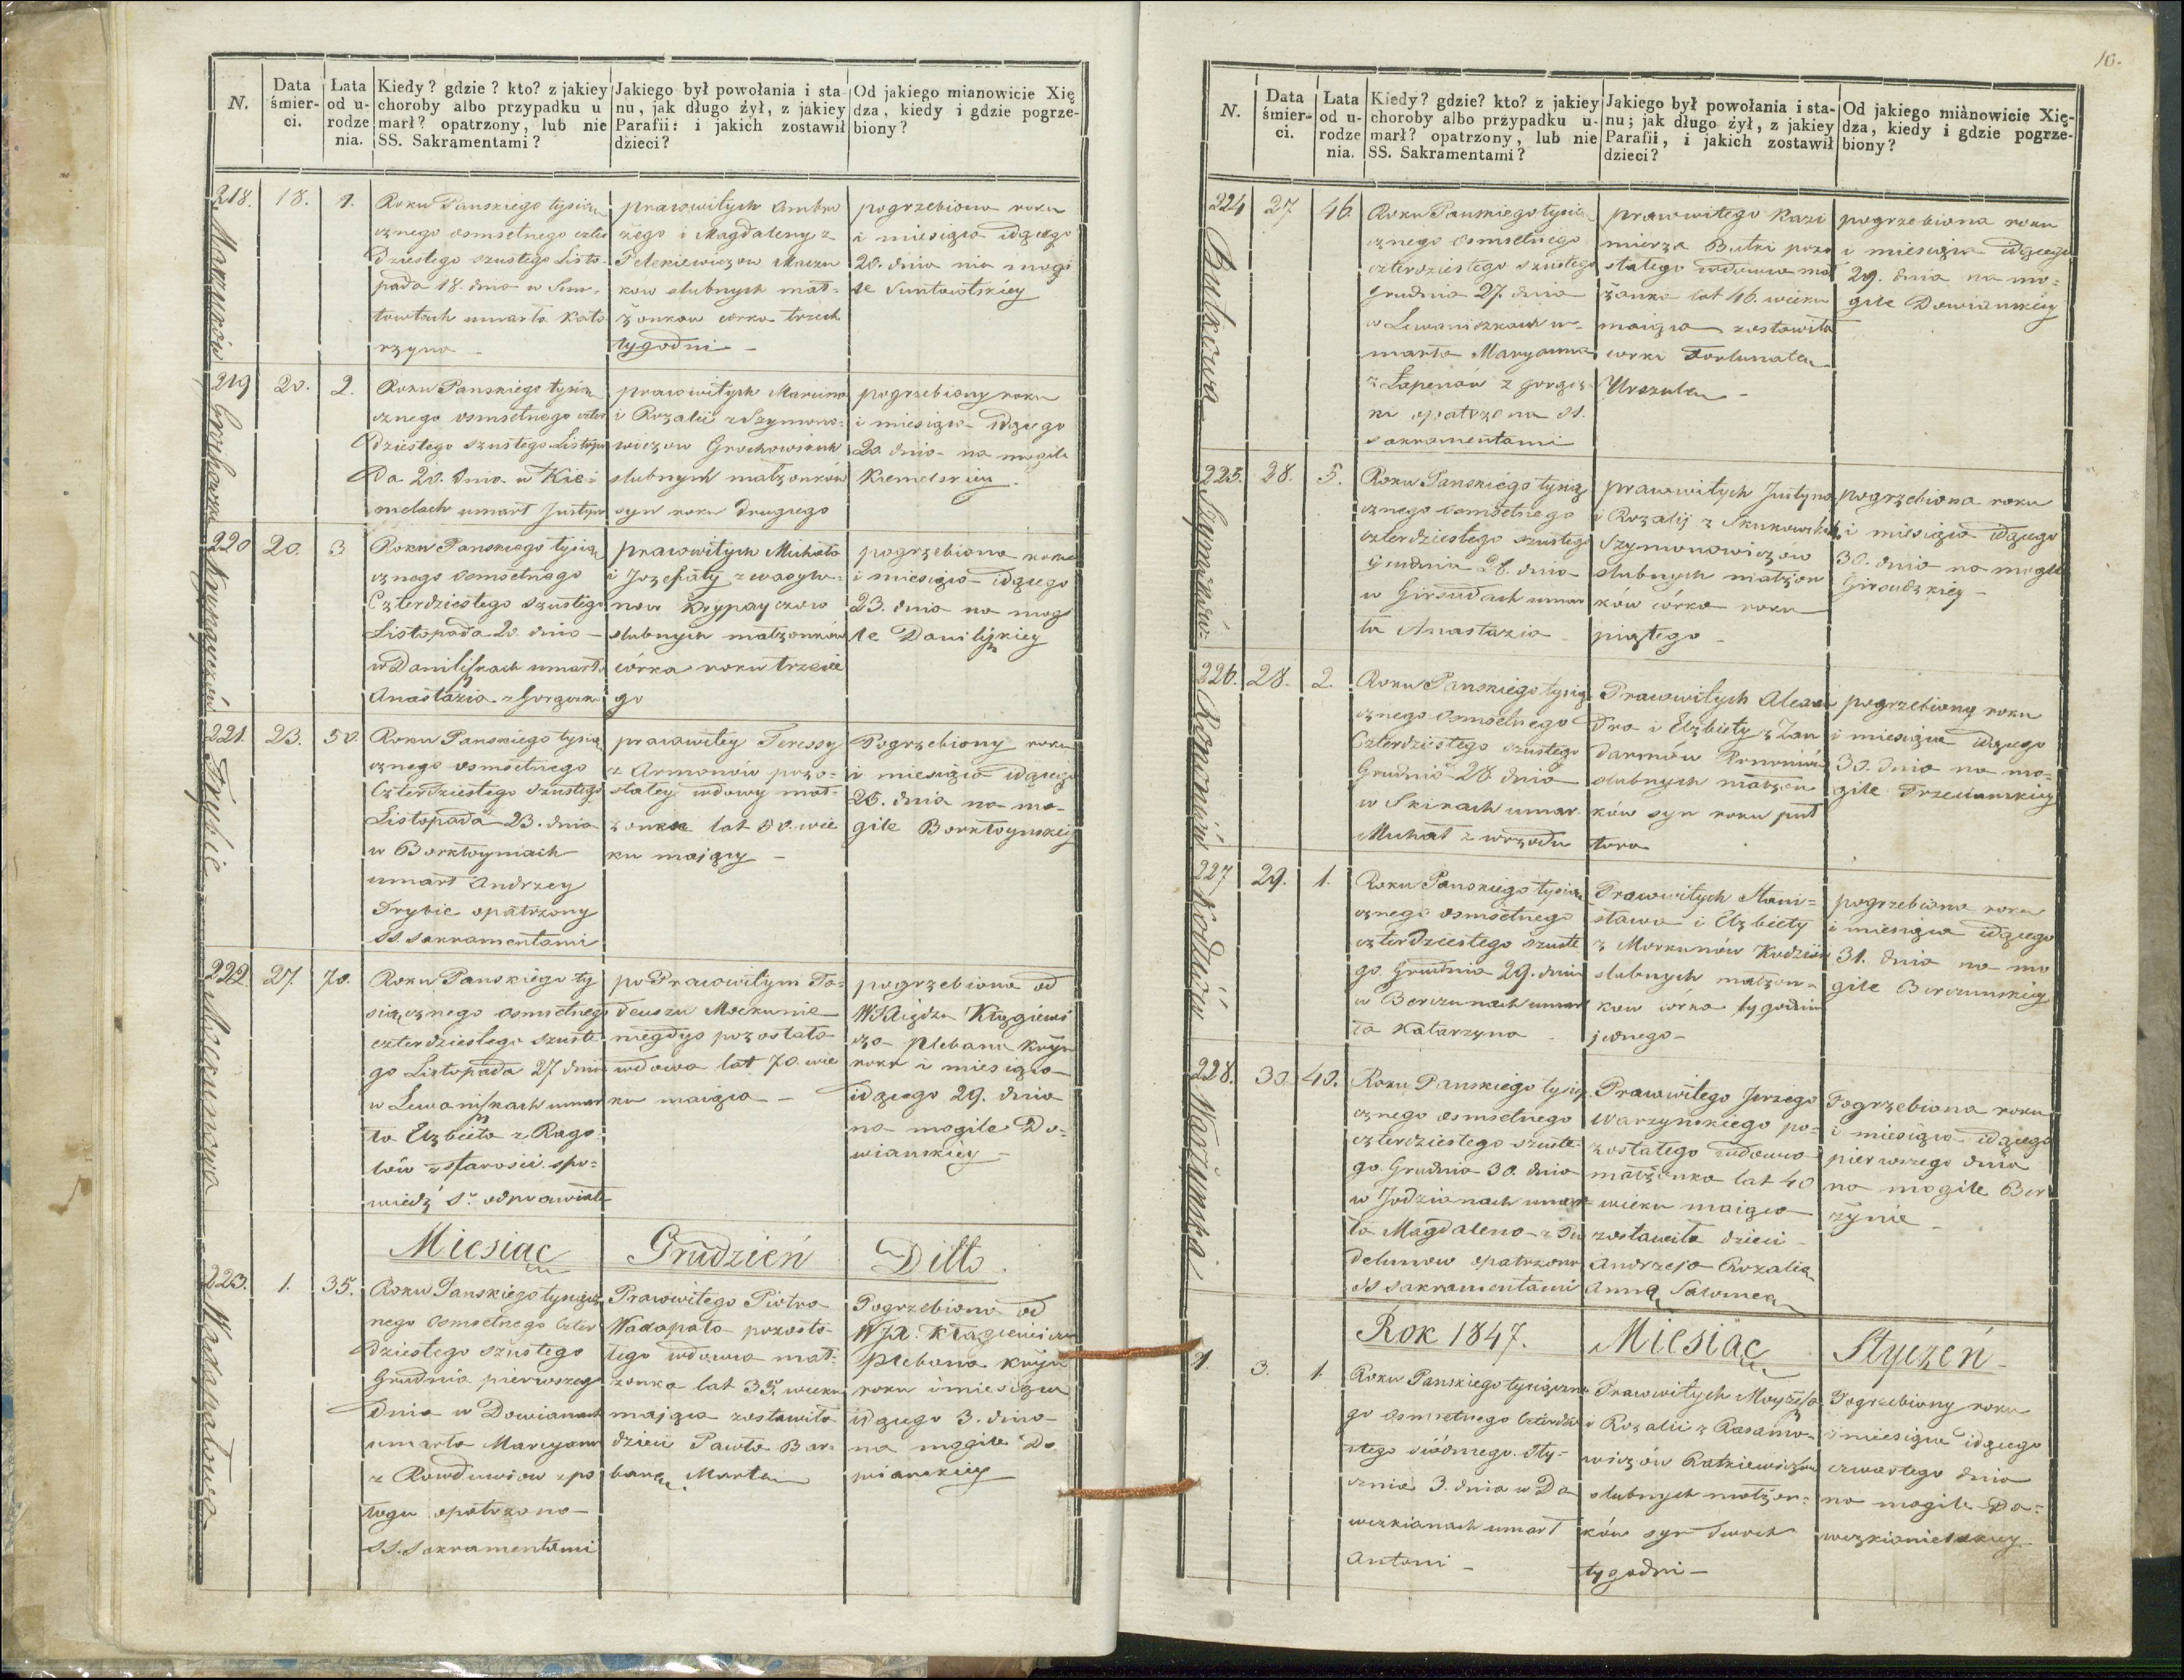 N.
Data śmier-
ci.
Lata
od u-
rodze
nia.
Kiedy? gdzie? kto? z jakiey
choroby albo przypadku u
marł? opatrzony, lub nie
SS. Sakramentami?
Jakiego był powołania i sta-
nu, jak długo żył, z jakiey
Parafii: i jakich zostawił
dzieci?
Od jakiego mianowicie Xię
dza, kiedy i gdzie pogrze-
biony?
218.
18.
1.
Roku Panskiego tysią
cznego osmsetnego czter
dziestego szustego Listo
pada 18. dnia w Sun-
towtach umarła Kata
rzyna
prawowitych Ambro
żego i Magdaleny z
Petekiewiczow
kow slubnych mał-
żonkow corka trzech
tygodni
pogrzebiona roku
i miesiąca idącego
20. dnia na mogi
le Suntowtskiey
219
20.
2.
Roku Panskiego tysią
cznego osmsetnego czter
dziestego szustego Listopa
da 20. dnia w Kie-
melach umarł Justyn
prawowitych Marcina
i Rozalii z Szymono-
wiczow Grochowskich
slubnych małżonków
syn roku drugiego
pogrzebiony roku
i miesiąca idącego
20 dnia na mogile
Kiemelskiey
220
20.
3
Roku Panskiego tysią
cznego osmsetnego
Czterdziestego szustego
Listopada 20. dnia
w Daniliszkach umarła
Anastazia z Gorączki
prawowitych Michała
i Jozefaty z Wasyle-
now
slubnych małżonków
córka roku trzecie
go
pogrzebiona roku
i miesiąca idącego
23. dnia na mogi
le Daniliszkiey
221.
23.
50.
Trybie
Roku Panskiego tysią
cznego osmsetnego
Czterdziestego szustego
Listopada 23. dnia
w Borktoyniach
umarł Andrzey
Trybie opatrzony
SS. Sakramentami
prawowitey Teressy
z Armonów pozo-
stałey wdowy mał-
żonek lat 50. wie
ku mający
Pogrzebiony roku
i miesiąca idącego
25. dnia na mo-
gile Borktoynskiey
222
27.
70.
Mockunowa
Roku Panskiego ty
siącznego osmsetnego
czterdziestego szuste
go Listopada 27 dnia
w Lewaniszkach umar
ła Elzbieta z Rago
lów z starosci. spo-
wiedź S. odprawiała
po Prawowitym Ta-
deuszu Mockunie
niegdyś pozostała
wdowa lat 70. wie
ku maiąca
pogrzebiona od
WXiędza
cza Plebana
roku i miesiąca
idącego 29. dnia
na mogile Do-
wianskiey
Miesiąc Grudzień Ditto.
223.
1.
35.
Wadapałowa
Roku Panskiego tysiącz
nego osmsetnego czter
dziestego szustego
Grudnia pierwszego
dnia w Dowianach
umarła Maryanna
z Rowduwiow z po
łogu opatrzona
SS. Sakramentami
Prawowitego Piotra
Wadapała pozosta-
łego wdowca mał-
żonka lat 35. wieku
mająca zostawiła
dzieci Pawła Bar-
barę, Martę
Pogrzebiona od
WJX.
plebana
roku i miesiąca
idącego 3. dnia
na mogile Do
wianskiey
10.
N.
Data
śmier-
ci.
Lata
od u-
rodze
nia.
Kiedy? gdzie? kto? z jakiey
choroby albo przypadku u-
marł? opatrzony, lub nie
SS. Sakramentami?
Jakiego był powołania i sta-
nu; jak długo żył, z jakiey
Parafii, i jakich zostawił
dzieci?
Od jakiego mianowicie Xię-
dza, kiedy i gdzie pogrze-
biony?
224
27
46.
Butkowa
Roku Panskiego tysią
cznego osmsetnego
czterdziestego szustego
Grudnia 27. dnia
w Lewaniszkach u-
marła Maryanna
z Łapenów z gorącz
ki opatrzona SS.
sakramentami
prawowitego Kazi
mierza Butki pozo
stałego wdowca mał
żonka lat 46. wieku
maiąca zostawiła
corki Fortunatę
Urszulę
pogrzebiona roku
i miesiąca idącego
29. dnia na mo-
gile Dowianskiey
225.
28.
5.
Roku Panskiego tysią
cznego osmsetnego
czterdziestego szustego
Grudnia 28. dnia
w Girsudach umar
ła Anastazia
prawowitych Justyna
i Rozalij z
Szymonowiczow
slubnych małżon
ków córka roku
piątego
pogrzebiona roku
i miesiąca idącego
30. dnia na mogile
Girsudzkiey
226.
28.
2.
Roku Panskiego tysią
cznego osmsetnego
Czterdziestego szustego
Grudnia 28 dnia
w Skirach umar
Michał z wrzodu
Prawowitych Alexan
dra i Elzbiety z Zan
darmów
slubnych małżon
ków syn roku puł
tora
pogrzebiony roku
i miesiąca idącego
30. dnia na mo-
gile
227
29.
1.
Roku Panskiego tysią
cznego osmsetnego
czterdziestego szuste
go Grudnia 29. dnia
w Berczunach umar
ła Katarzyna
Prawowitych Stani-
sława i Elzbiety
z Morkunów
slubnych małżon-
kow córka tygodnia
jednego
pogrzebiona roku
i miesiąca idącego
31. dnia na mo
gile Berczunskiey
228.
30.
40.
Warżynska
Roku Panskiego tysią
cznego osmsetnego
czterdziestego szuste-
go Grudnia 30. dnia
w Jodzianach umar
ła Magdalena z
opatrzona
SS sakramentami
Prawowitego Jerzego
Warzynskiego po-
zostałego wdowca
małżonka lat 40
wieku maiąca
zostawiła dzieci
Andrzeja Rozalię
Annę Salomeę
Pogrzebiona roku
i miesiąca idącego
pierwszego dnia
na mogile Ber
żynie
Rok 1847. Miesiąc Styczeń
1.
3.
1.
Roku Panskiego tysiączne
go osmsetnego czterdzie
stego siódmego Sty-
cznia 3. dnia w Da
weykianach umarł
Antoni
Prawowitych Moyżesza
i Rozalii z Rasamo-
wiczów Ratkiewiczow
slubnych małżon-
ków syn dwóch
tygodni
Pogrzebiony roku
i miesiąca idącego
czwartego dnia
na mogile